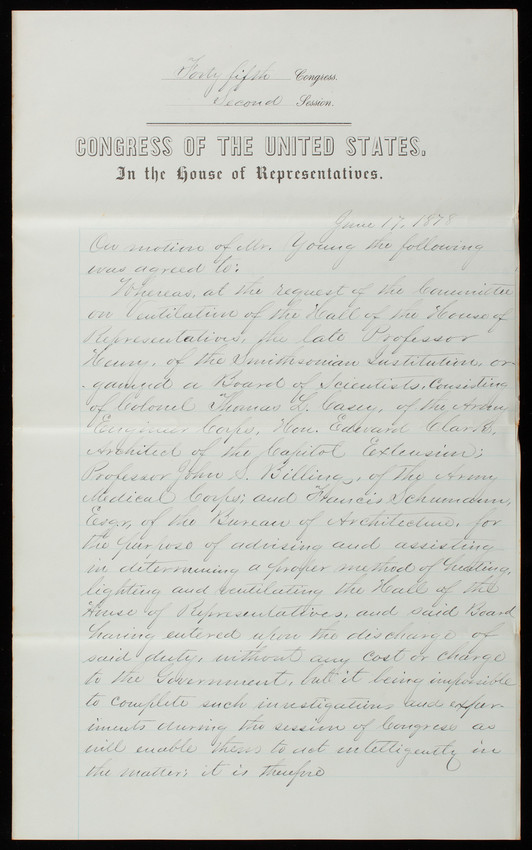 Forty fifth Congress.
Second Session.
CONGRESS OF THE UNITED STATES,
In the House of Representatives.
June 17, 1878
On motion of Mr. Young the following
was agreed to:
Whereas, at the request of the Committee
on Ventilation of the Hall of the House of
Representatives, the late Professor
Henry, of the Smithsonian Institution, or-
ganized a Board of Scientists, consisting
of Colonel Thomas L. Casey, of the Army
Engineer Corps, Hon. Edward Clark,
Architect of the Capitol Extension;
Professor John S. Billings, of the Army
Medical Corps; and Francis Schumann,
Esqr, of the Bureau of Architecture, for
the purpose of advising and assisting
in determining a proper method of heating,
lighting and ventilating the Hall of the
House of Representatives, and said Board
having entered upon the discharge of
said duty, without any cost or charge
to the Government, but it being impossible
to complete such investigations and exper-
iments during the session of Congress as
will enable them to act intelligently in
the matter; it is therefore